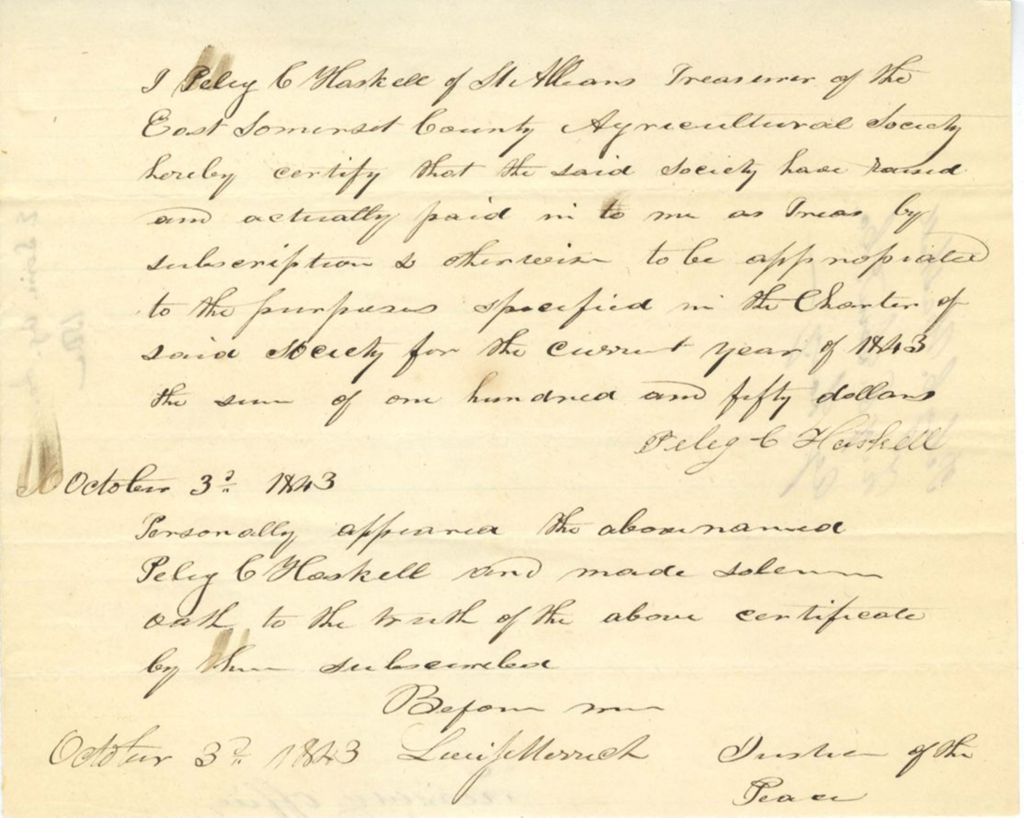 I Peleg C Haskell of St Albans Treasurer of the
East Somerset County Agricultural Society
hereby certify that the said Society have raised
and actually paid in to me as Treas by
subscription & otherwise to be appropiated
to the purposes specified in the Charter of
said Society for the current year of 1843
the sum of one hundred and fifty dollars
Peleg C Haskell
October 3d 1843
Personally appeared the above named
Peleg C Haskell and made solemn
oath to the truth of the above certificate
by him subscribed
Before me
October 3d 1843 Merrick Justice of the
Peace